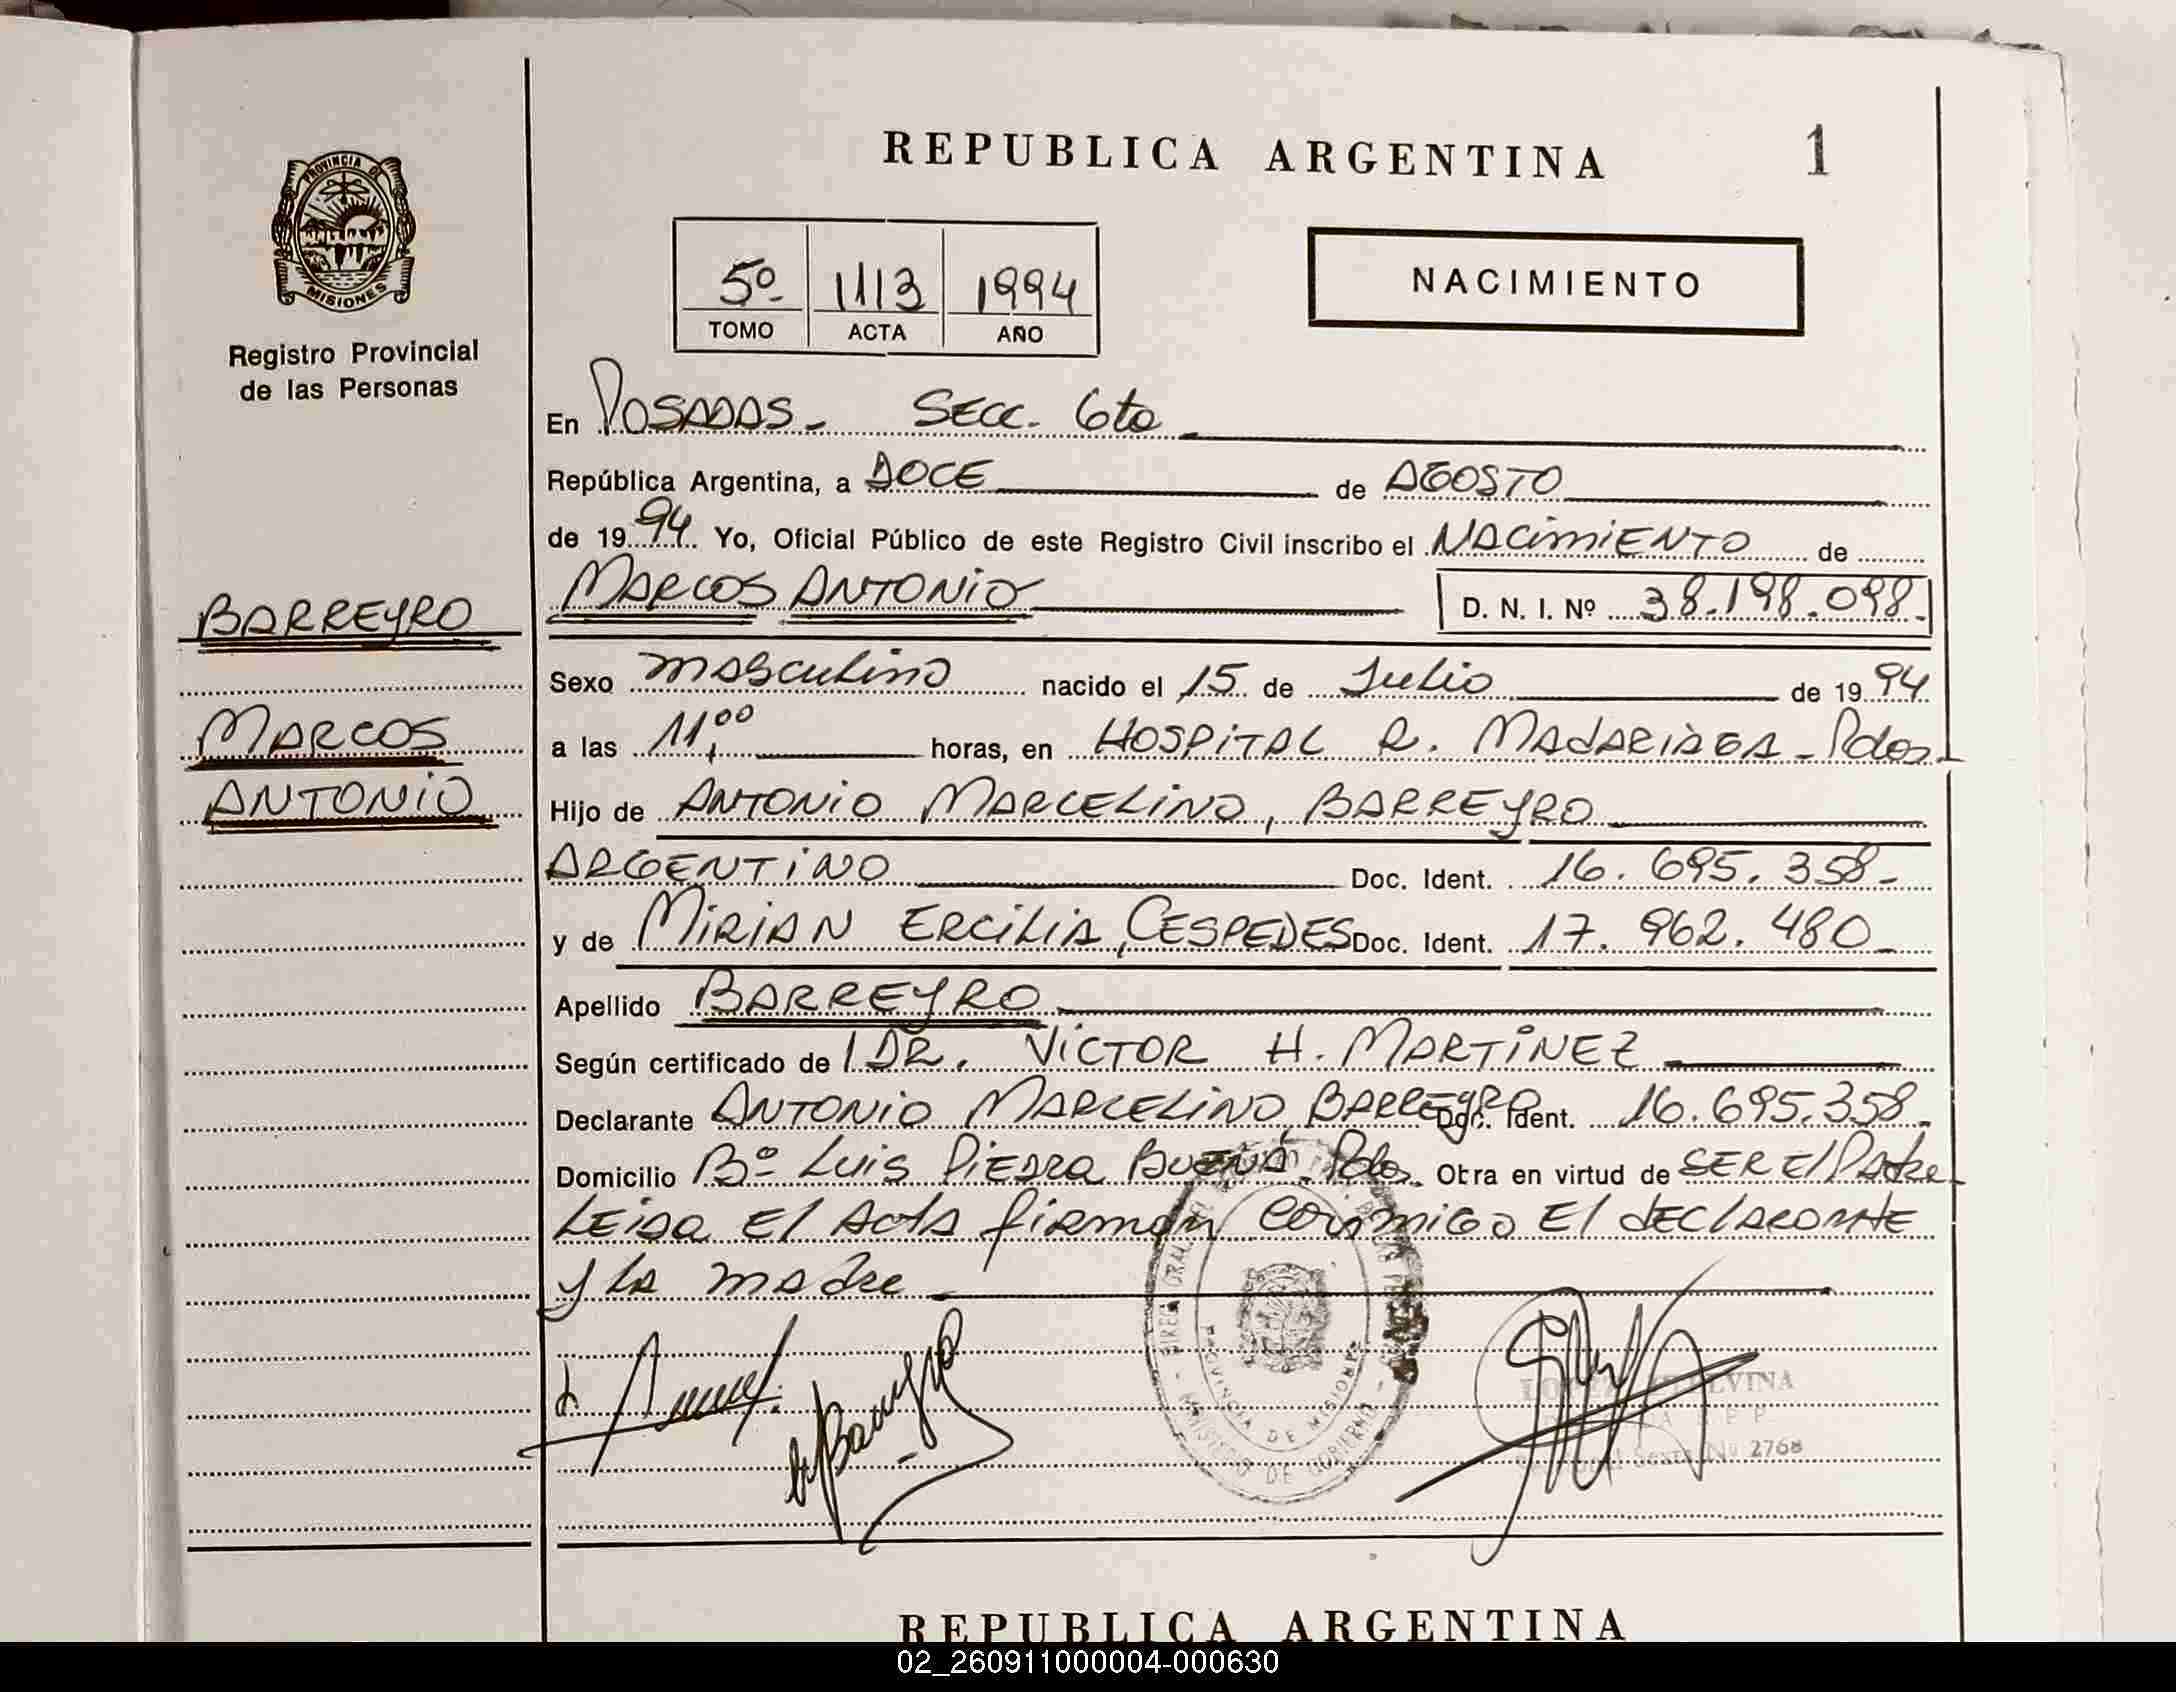 REPUBLICA ARGENTINA
1
PROVINCIA DE
MISIONES
Registro Provincial
de las Personas
5º 1113 1994
TOMO ACTA AÑO
NACIMIENTO
En POSADAS - SECC. 6ta
República Argentina, a DOCE de AGOSTO
de 1994 Yo, Oficial Público de este Registro Civil inscribo el NACIMIENTO de
MARCOS ANTONIO D. N. I. Nº 38.198.098.
BARREYRO
MARCOS
ANTONIO
Sexo masculino nacido el 15 de Julio de 1994
a las 11,00 horas, en HOSPITAL R. MADARIAGA - Pdas.
Hijo de ANTONIO MARCELINO, BARREYRO
ARGENTINO Doc. Ident. 16.695.358-
y de MIRIAN ERCILIA, CESPEDES Doc. Ident. 17.962.480
Apellido BARREYRO
Según certificado de DR. VICTOR H. MARTINEZ
Declarante ANTONIO MARCELINO, BARREYRO Doc. Ident. 16.695.358.
Domicilio Bº LUIS PIEDRA BUENA Pdas. Otra en virtud de SER El Padre
LEIDA El Acta firman conmigo El dEClarante
y la madre
PROVINCIA DE MISIONES
MINISTERIO DE GOBIERNO
Nº 2768
REPUBLICA ARGENTINA
02_260911000004-000630